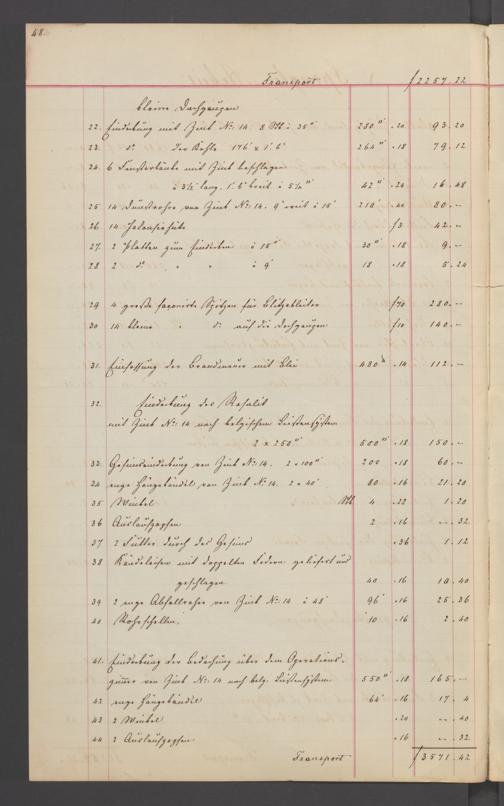 48.
Transport f 2257. 22
kleine Dachgaupen
22. Eindeckung mit Zink No. 14. 8 Stk à 35" 280" .20 93.20
23. do. der Kehle 176' x 1'.6" 264" .18 79.12
24. 6 Fensterbänke mit Zink beschlagen
à 3½' lang, 1'.6" breit à 5¼" 42" .24 16.48
25 14 Dunstrohre von Zink No. 14. 9" weit à 15' 210' .40 80.--
26 14 f 3 42.--
27. 2 Platten zum Eindecken à 15" 30" .18 9.--
28 2 do. " " à 9' 18 .18 5.24
29 4 große façonirte Spitzen für Blitzableiter f 70 280.--
30 14 kleine " do. auf die Dachgaupen f 10 140.--
31. Einfassung der Brandmauer mit Blei 480 .14 112.--
32. Eindeckung des Risalit
mit Zink No. 14 nach belgischem Leistensystem
2 x 250" 500" .18 150.--
33. Gesimseindeckung von Zink No. 14. 2 x 100" 200 .18 60.--
34 enge Hängekändel von Zink No. 14. 2 x 40' 80 .16 21.20
35 Winkel Stk 4 .22 1.20
36 Auslaufzapfen 2 .16 --.32
37 2 Futter durch das Gesims .36 1.12
38 Kändeleisen mit doppelten Federn geliefert und
geschlagen 40 .16 10.40
39 2 enge Abfallrohre von Zink No. 14 à 48' 96' .16 25.36
40 Rohrschellen. 10 .16 2.40
41. Eindeckung der Bedachung über dem Operations-
zimmer von Zink No. 14 nach belg. Leistensystem 550" .18 165.--
42 enge Hängekändel 64' .16 17.4
43 2 Winkel .20 --.40
44 2 Auslaufzapfen .16 --.32
Transport f 3571.42